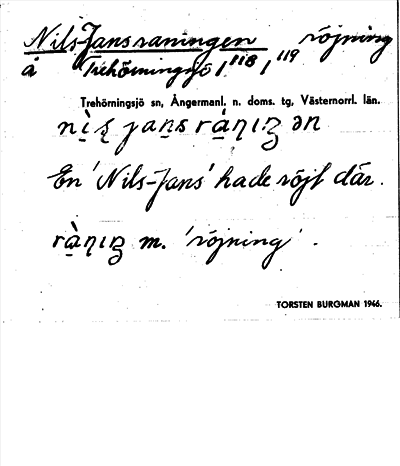 Nils-Jansraningen röjning
å Trehörningsjö 1/118, 119
Trehörningsjö sn, Ångermanl. n. doms. tg, Västernorrl. län.
En 'Nils-Jans' hade röjt där.
m. 'röjning'.
TORSTEN BURGMAN 1946.